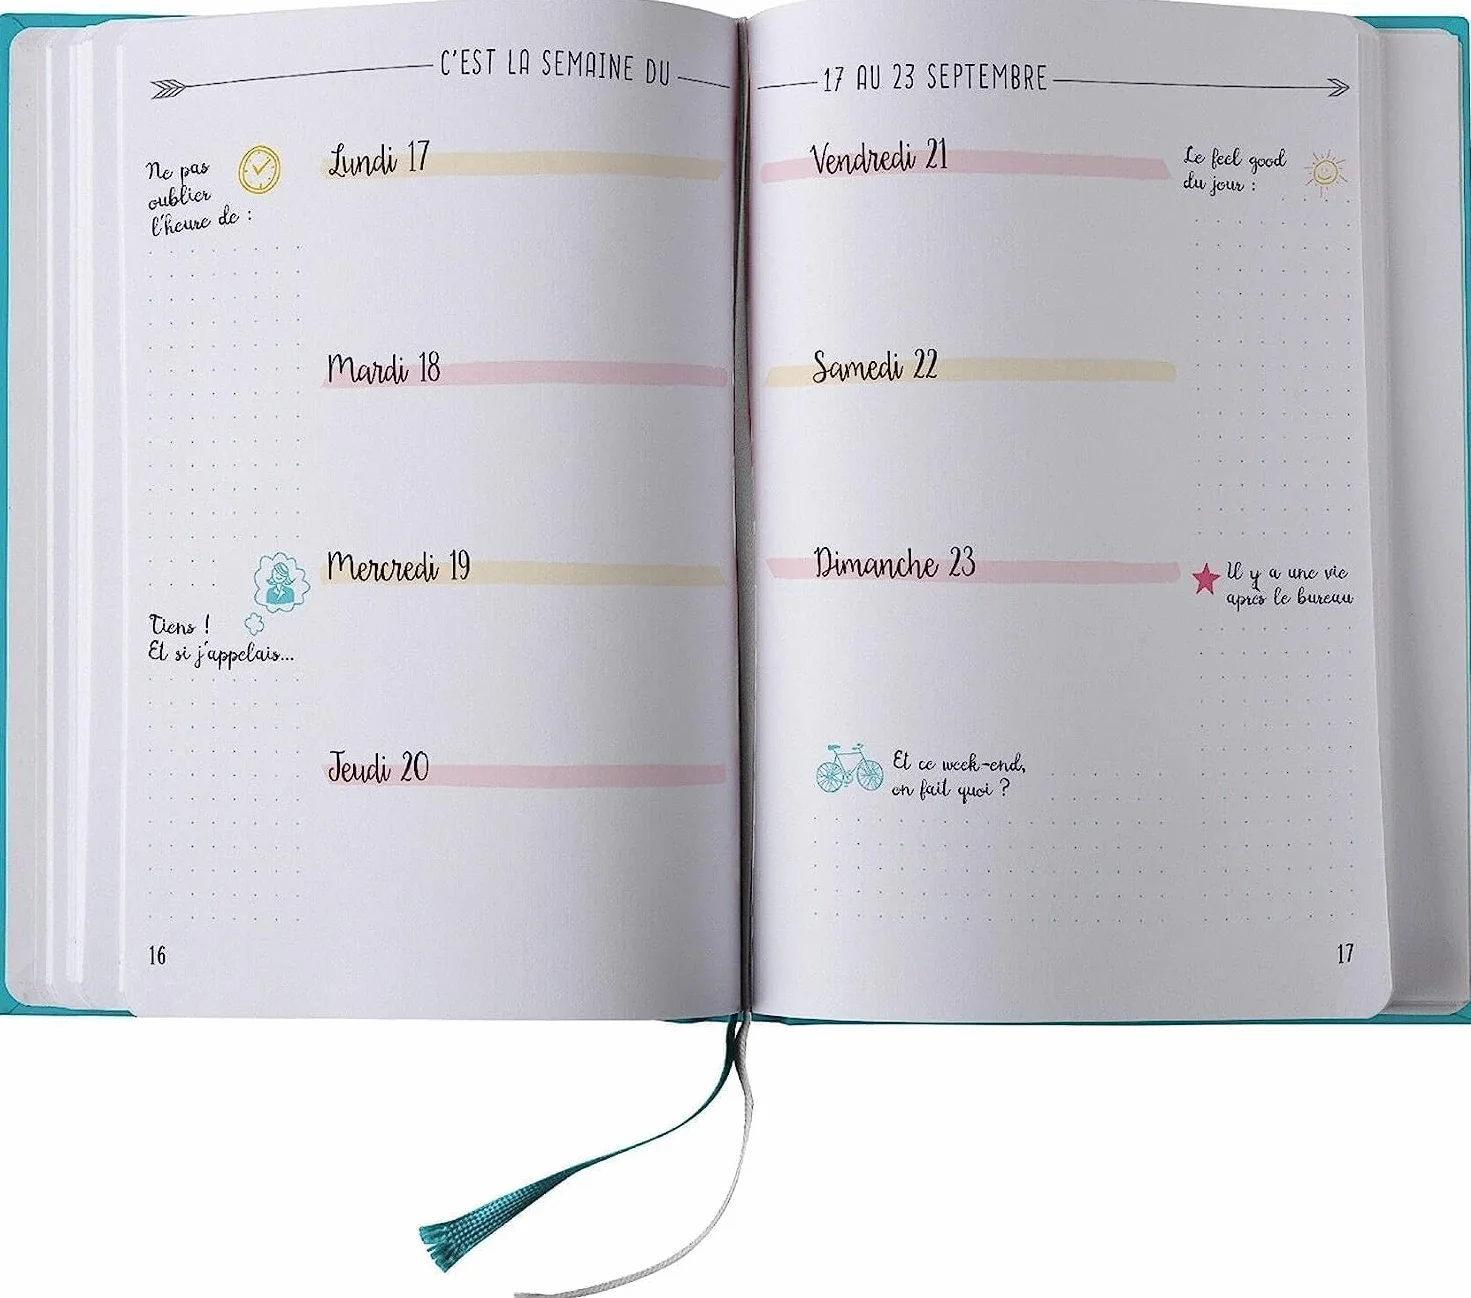 C'EST LA SEMAINE DU
17 AU 23 SEPTEMBRE
Ne pas
oublier
l'heure de :
Lundi 17
Mardi 18
Mercredi 19
Tiens !
Et si j'appelais...
Jeudi 20
16
Vendredi 21
Le feel good
du jour :
Samedi 22
Dimanche 23
Il y a une vie
après le bureau
Et ce week-end,
on fait quoi ?
17